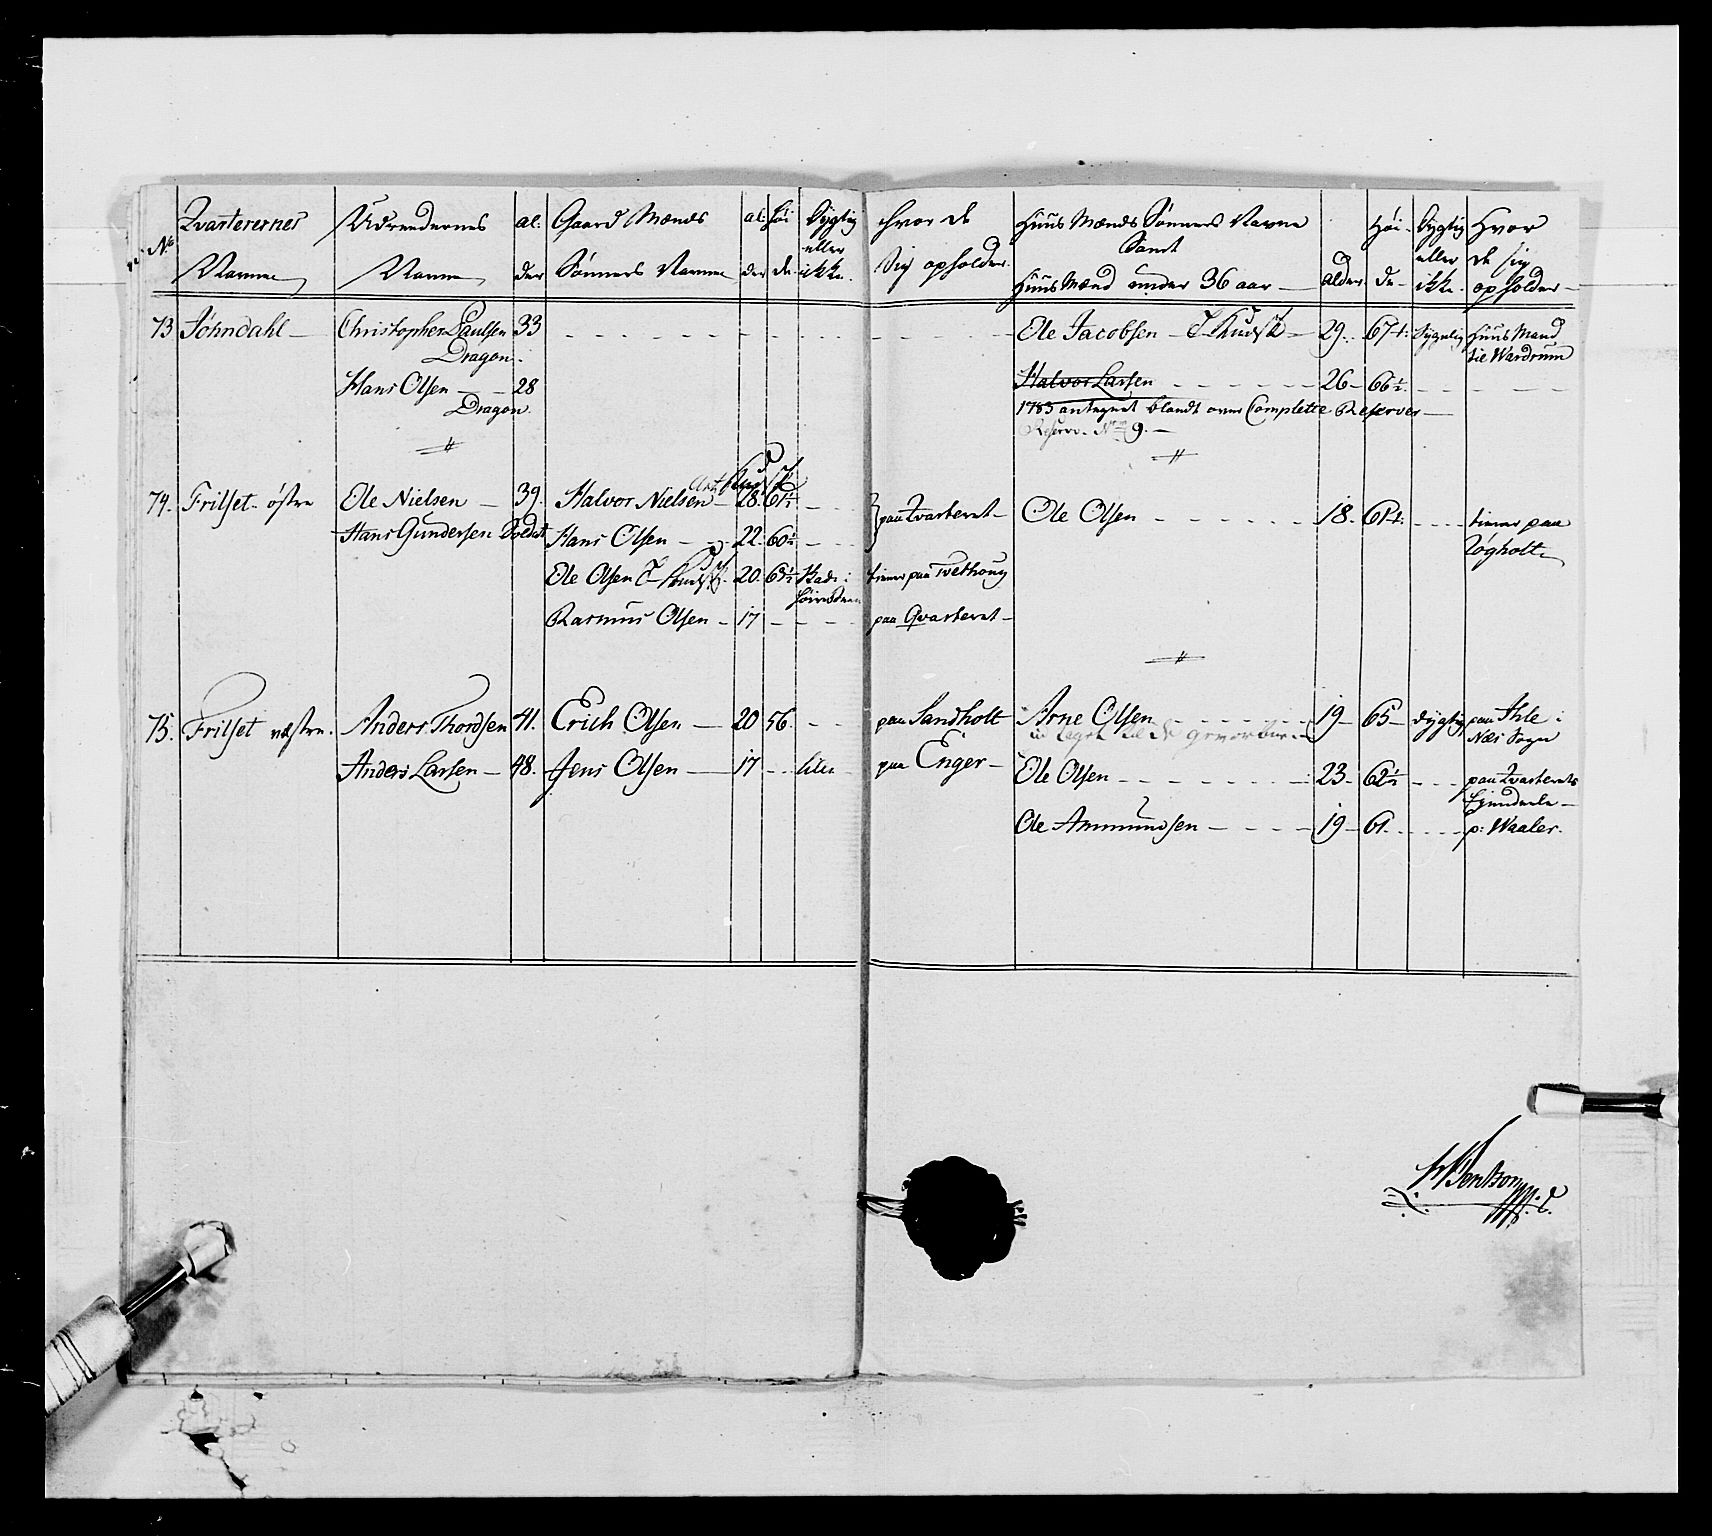 No Qvarterernes Navne
Udreedernes Navne
al: der
Gaard Mænds Sønners Navne
al: der
Høi de
Dygtig eller ikke.
Hvor de sig opholder.
Huus Mænds Sønners Navne
Samt
Huus Mænd under 36 aar
alder
Høi- de
Dygtig eller ikke.
Hvor de sig opholder
73 Johndahl Christopher Paulsen 33 Ole Jacobsen 29. 67 Huus Mand
Dragon. Wardrum
Hans Olsen 28 Halvor Larsen 26 66½
Dragon. 1783 antegnet blandt over Complette Reserver
Reserv. No 9.
74. Frilset østre Ole Nielsen 39. Halvor Nielsen 28. 61½ paa Qvarteret Ole Olsen 18. 61 tiener paa
Hans Gundersen Soldat Hans Olsen 22. 60½
Ole Olsen 20. 63½ tiener paa
Rasmus Olsen 17 paa Qvarteret
75. Frilset westre. Anders Thordsen 41. Erich Olsen 20 56. paa Sandholt Arne Olsen 19 65 dygtig paa Ihle i
Næs Sogn
Anders Larsen 48. Jens Olsen 17 liden paa Enger Ole Olsen 23. 62½ paa Qvarterets
Ole Ammundsen 19 61. p: Waaler.